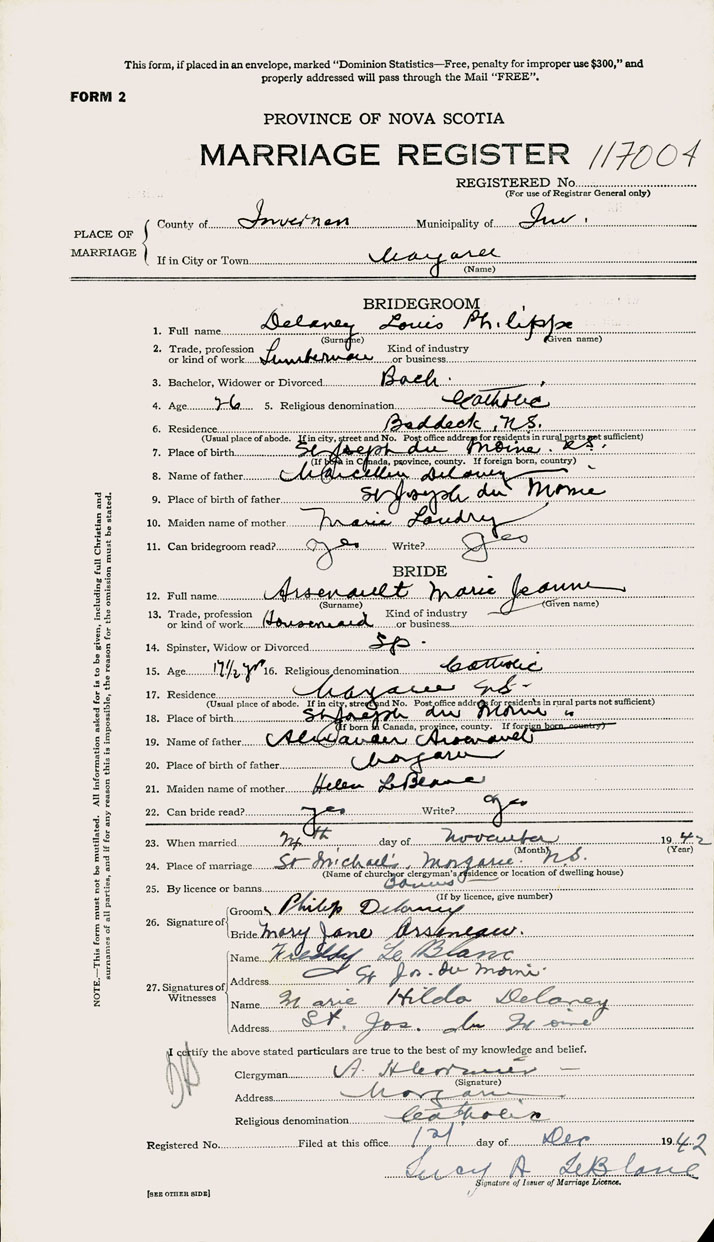 This form, if placed in an envelope, marked "Dominion Statistics—Free, penalty for improper use $300," and
properly addressed will pass through the Mail "FREE".
FORM 2
PROVINCE OF NOVA SCOTIA
MARRIAGE REGISTER 117004
REGISTERED No.
(For use of Registrar General only)
PLACE OF MARRIAGE
County of Inverness Municipality of Inv.
If in City or Town Margaree
(Name)
BRIDEGROOM
1. Full name Delaney Louis Philippe
(Surname) (Given name)
2. Trade, profession or kind of work Lumberman Kind of industry or business
3. Bachelor, Widower or Divorced Bach.
4. Age 26 5. Religious denomination Catholic
6. Residence Baddeck, N.S.
(Usual place of abode. If in city, street and No. Post office address for residents in rural parts not sufficient)
7. Place of birth St Joseph du Moine N.S.
(If born in Canada, province, county. If foreign born, country)
8. Name of father Marcellin Delaney
9. Place of birth of father St Joseph du Moine
10. Maiden name of mother Marie Landry
11. Can bridegroom read? yes Write? yes
BRIDE
12. Full name Arsenault Marie Jeanne
(Surname) (Given name)
13. Trade, profession or kind of work Housemaid Kind of industry or business
14. Spinster, Widow or Divorced Sp.
15. Age 17 1/2 yr 16. Religious denomination Catholic
17. Residence Margaree N.S.
(Usual place of abode. If in city, street and No. Post office address for residents in rural parts not sufficient)
18. Place of birth St Joseph du Moine "
(If born in Canada, province, county. If foreign born, country)
19. Name of father Alexander Arsenault
20. Place of birth of father Margaree
21. Maiden name of mother Helen LeBlanc
22. Can bride read? yes Write? yes
23. When married day of November 1942
(Month) (Year)
24. Place of marriage St Michael's, Margaree. N.S.
(Name of church or clergyman's residence or location of dwelling house)
25. By licence or banns Banns
(If by licence, give number)
26. Signature of
Groom Philip Delaney
Bride Mary Jane Arseneau.
27. Signatures of Witnesses
Name Freddy Le Blanc
Address St Jos. du Moine
Name Marie Hilda Delaney
Address St. Jos. du Moine
I certify the above stated particulars are true to the best of my knowledge and belief.
Clergyman A. H Cormier
(Signature)
Address Margaree
Religious denomination Catholic
Registered No. Filed at this office 1st day of Dec 1942
Lucy A LeBlanc
Signature of Issuer of Marriage Licence.
[SEE OTHER SIDE]
NOTE.—This form must not be mutilated. All information asked for is to be given, including full Christian and
surnames of all parties, and if for any reason this is impossible, the reason for the omission must be stated.